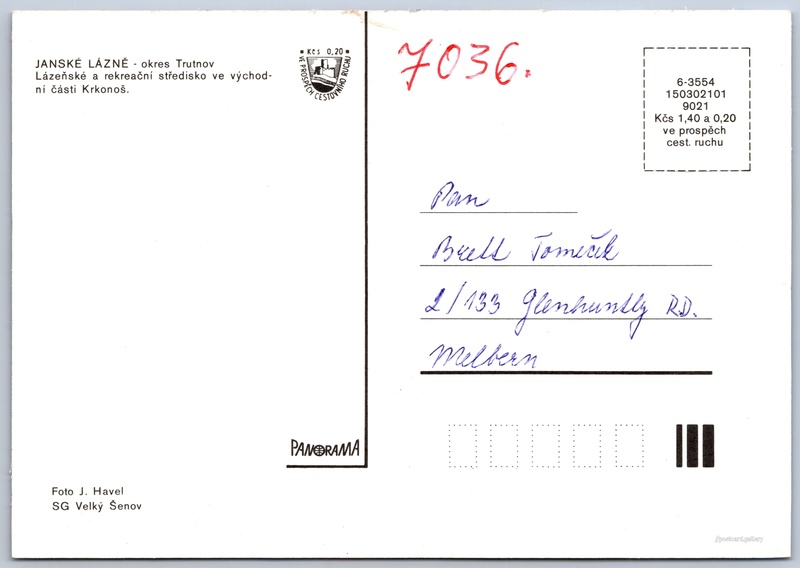 JANSKÉ LÁZNĚ - okres Trutnov
Lázeňské a rekreační středisko ve východ-
ní části Krkonoš.
Kčs 0,20
VE PROSPĚCH CESTOVNÍHO RUCHU
7036.
6-3554
150302101
9021
Kčs 1,40 a 0,20
ve prospěch
cest. ruchu
Pan
Brett Tomečík
2/133 Glenhuntly RD.
Melbern
PANORAMA
Foto J. Havel
SG Velký Šenov
//postcard.gallery